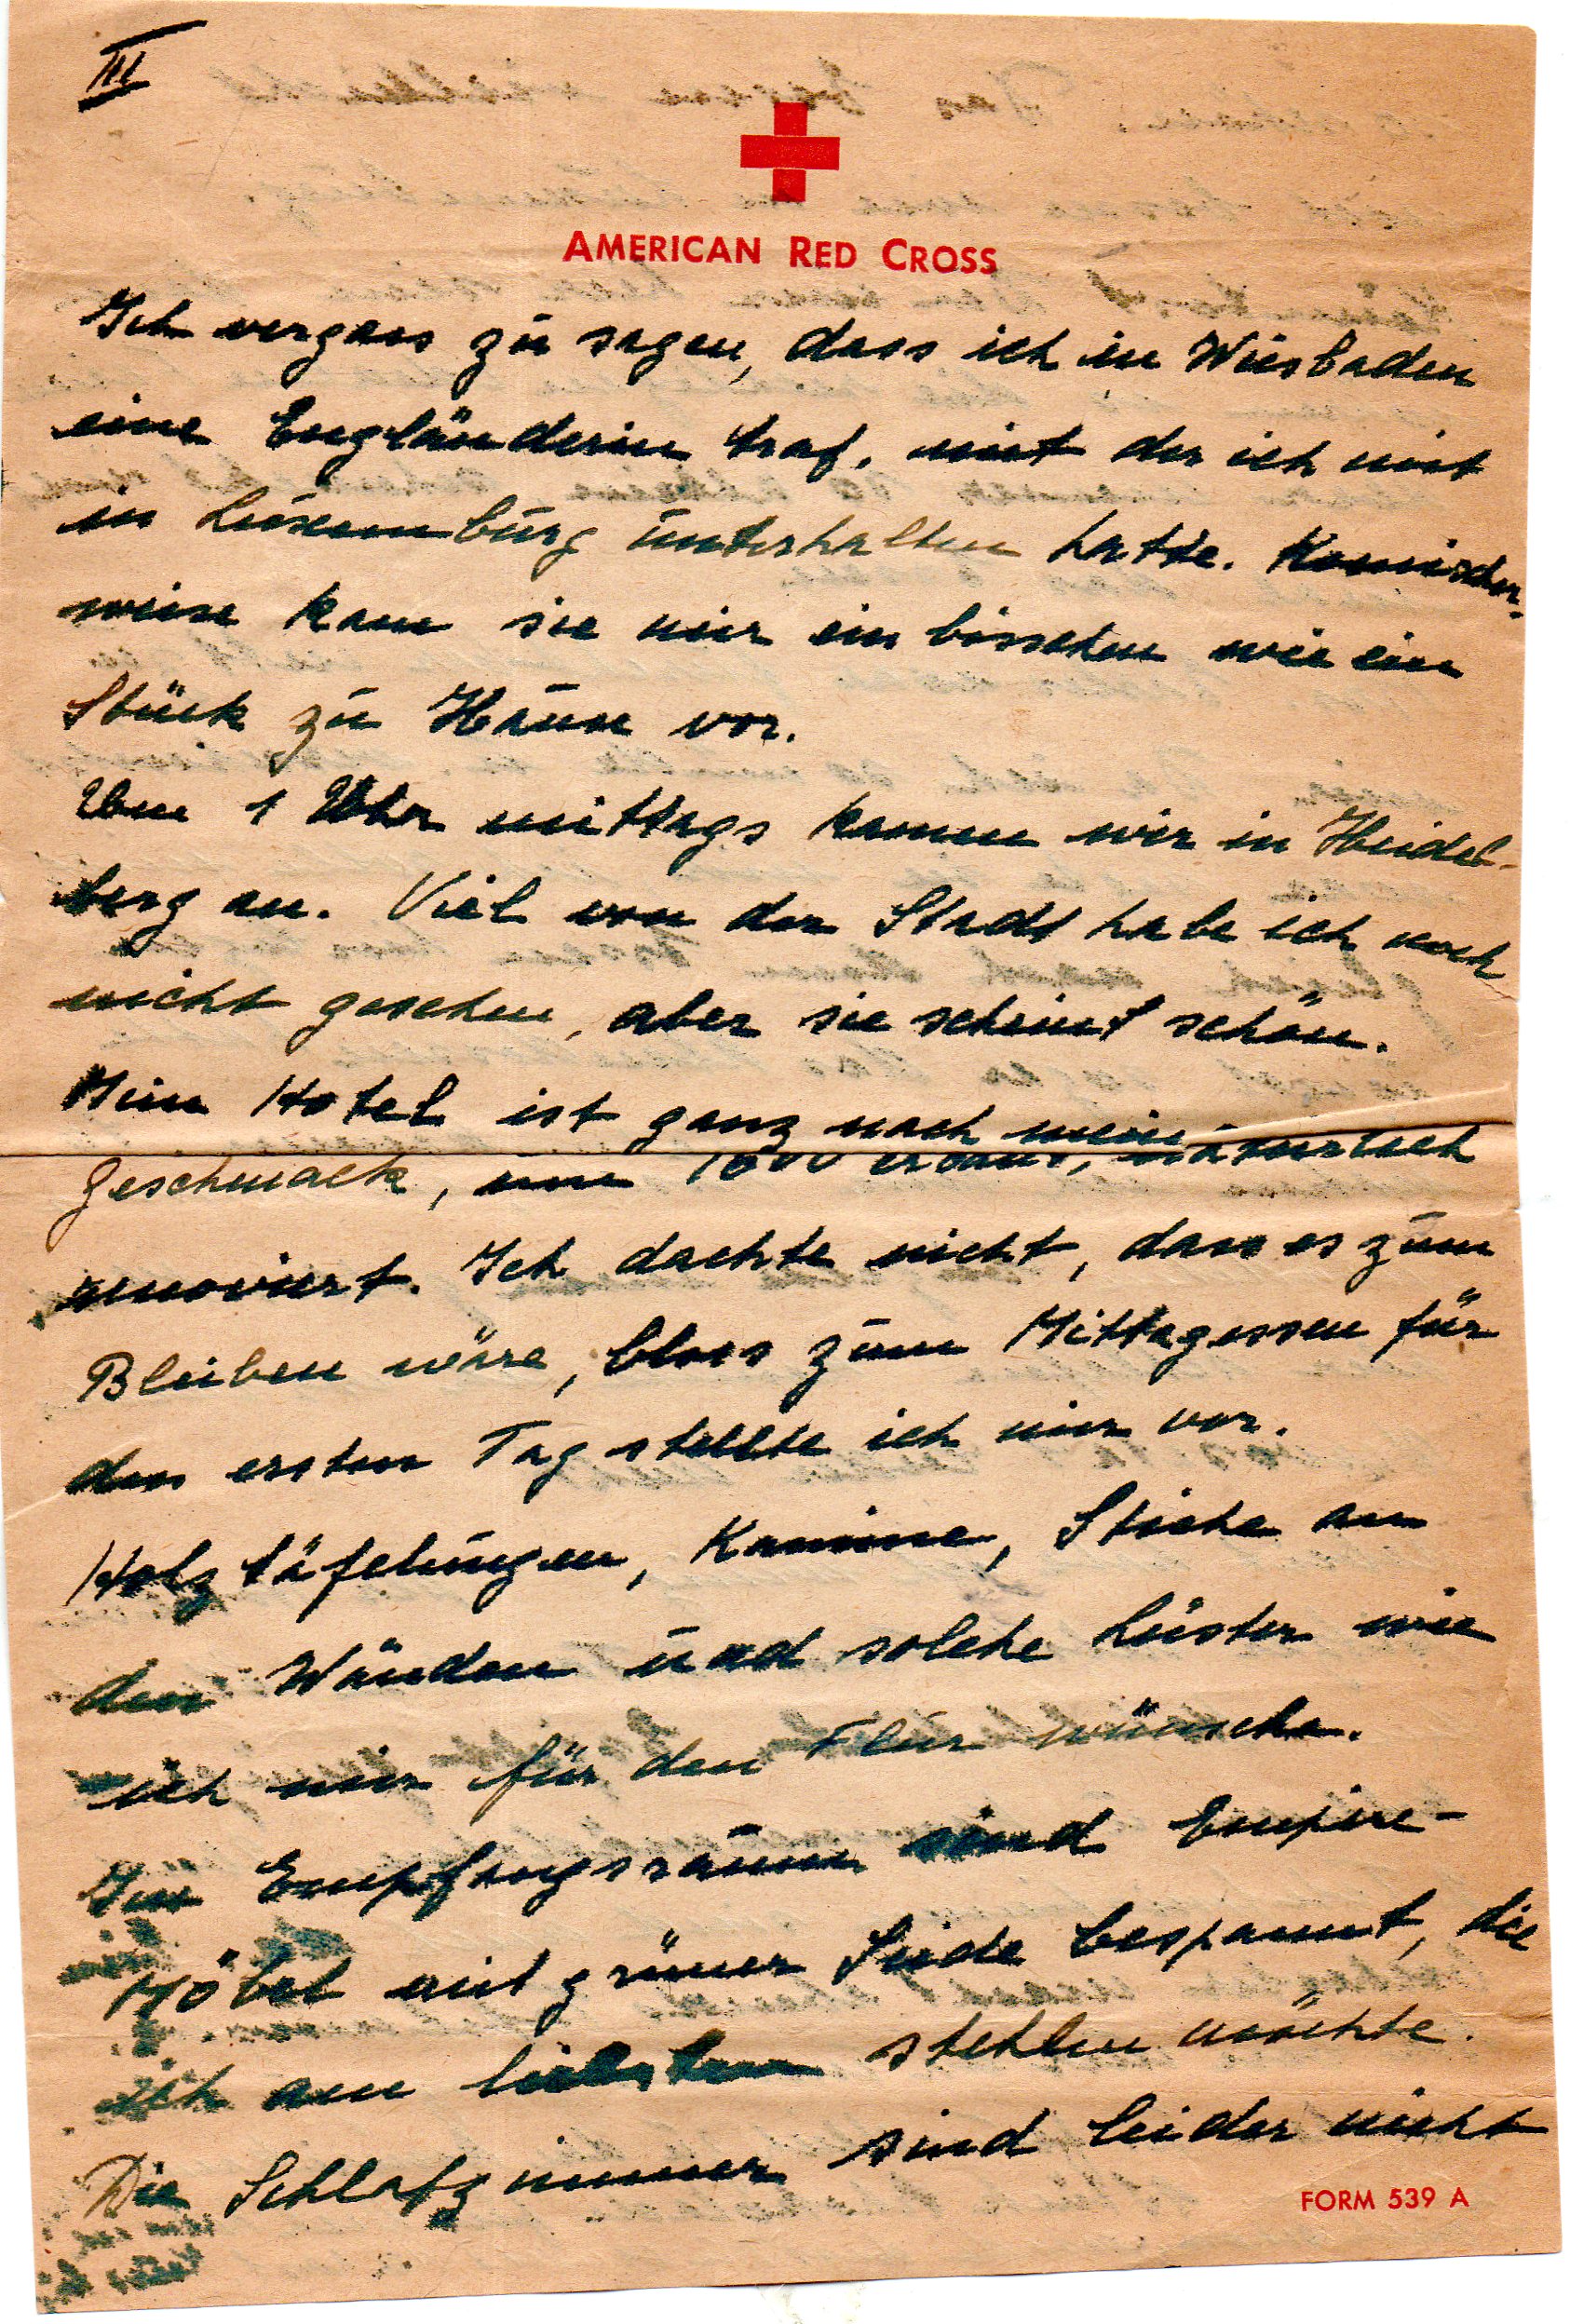 III
AMERICAN RED CROSS
Ich vergass zu sagen, dass ich in Wiesbaden
eine Engländerin traf, mit der ich mich
in Luxemburg unterhalten hatte. Komischer-
weise kam sie mir ein bisschen wie ein
Stück zu Hause vor.
Um 1 Uhr mittags kamen wir in Heidel-
berg an. Viel von der Stadt habe ich noch
nicht gesehen, aber sie scheint schön.
Mein Hotel ist ganz nach mein
Geschmack, um erbaut, natürlich
renoviert. Ich dachte nicht, dass es zum
Bleiben wäre, bloss zum Mittagessen für
den ersten Tag stellte ich mir vor.
Holztäfelungen, Kamine, Stiche an
den Wänden und solche Lüster wie
ich mir für den Flur wünsche.
Im Empfangsraum sind Empire-
Möbel mit grüner Seide bespannt, die
ich am liebsten stehlen möchte.
Die Schlafzimmer sind leider nicht
FORM 539 A